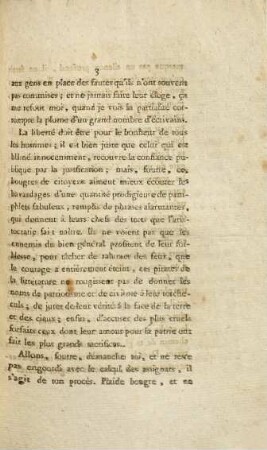 3
aux gens en place des fautes qu'ils n'ont souvent
pas commises ; et ne jamais faire leur éloge, ça
me refout mor, quand je vois la partialité cor-
rompre la plume d'un grand nombre d'écrivains.
La liberté doit être pour le bonheur de tous
les hommes ; il est bien juste que celui qui est
blâmé innocemment, recouvre la confiance pu-
blique par la justification ; mais, foutre, ces
bougres de citoyens aiment mieux écouter les
bavardages d'une quantité prodigieuse de pam-
phlets fabuleux, remplis de phrases alarmantes,
qui donnent à leurs chefs des torts que l'aris-
tocratie fait naître. Ils ne voient pas que les
ennemis du bien général profitent de leur foi-
blesse, pour tâcher de rallumer des feux, que
le courage a entièrement éteint, ces pirates de
la littérature ne rougissent pas de donner les
noms de patriotisme et de civisme à leur
de jurer de leur vérité à la face de la terre
et des cieux ; enfin, d'accuser des plus cruels
forfaits ceux dont leur amour pour la patrie ont
fait les plus grands sacrifices.
Allons, foutre, démanche toi, et ne reste
pas engourdi avec le calcul des assignats, il
s'agit de ton procès. Plaide bougre, et ne